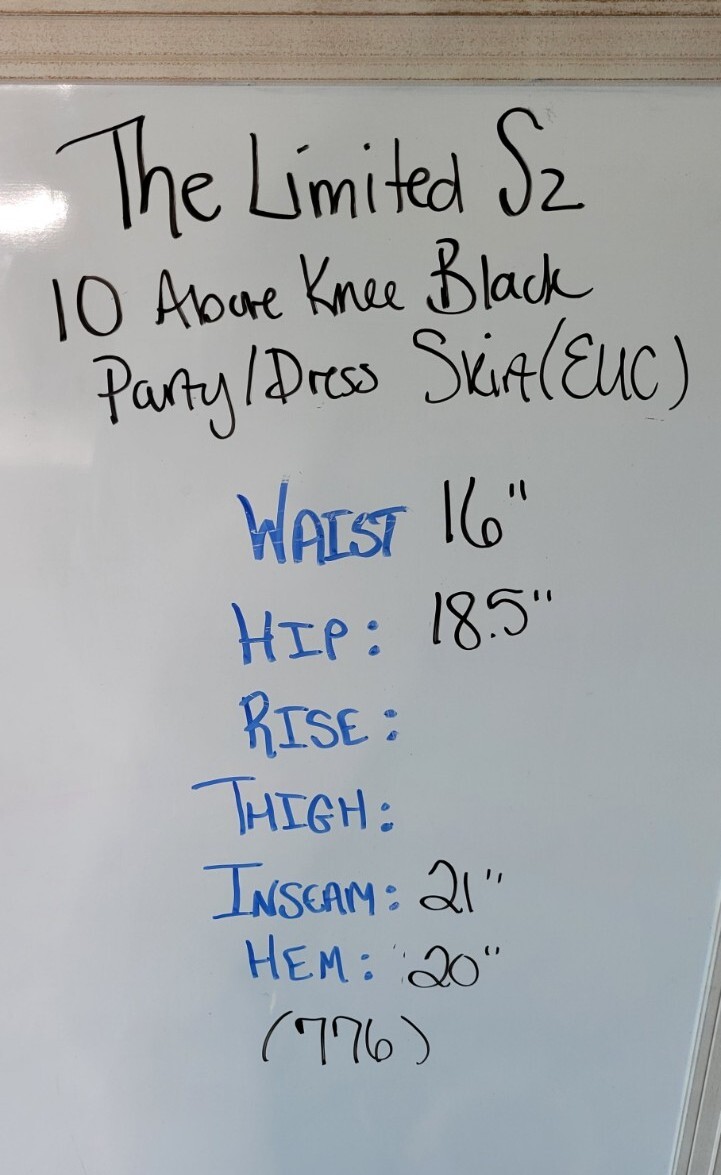 The Limited Sz
10 Above Knee Black
Party/Dress Skirt (EUC)
WAIST 16"
HIP: 18.5"
RISE:
THIGH:
INSEAM: 21"
HEM: 20"
(776)